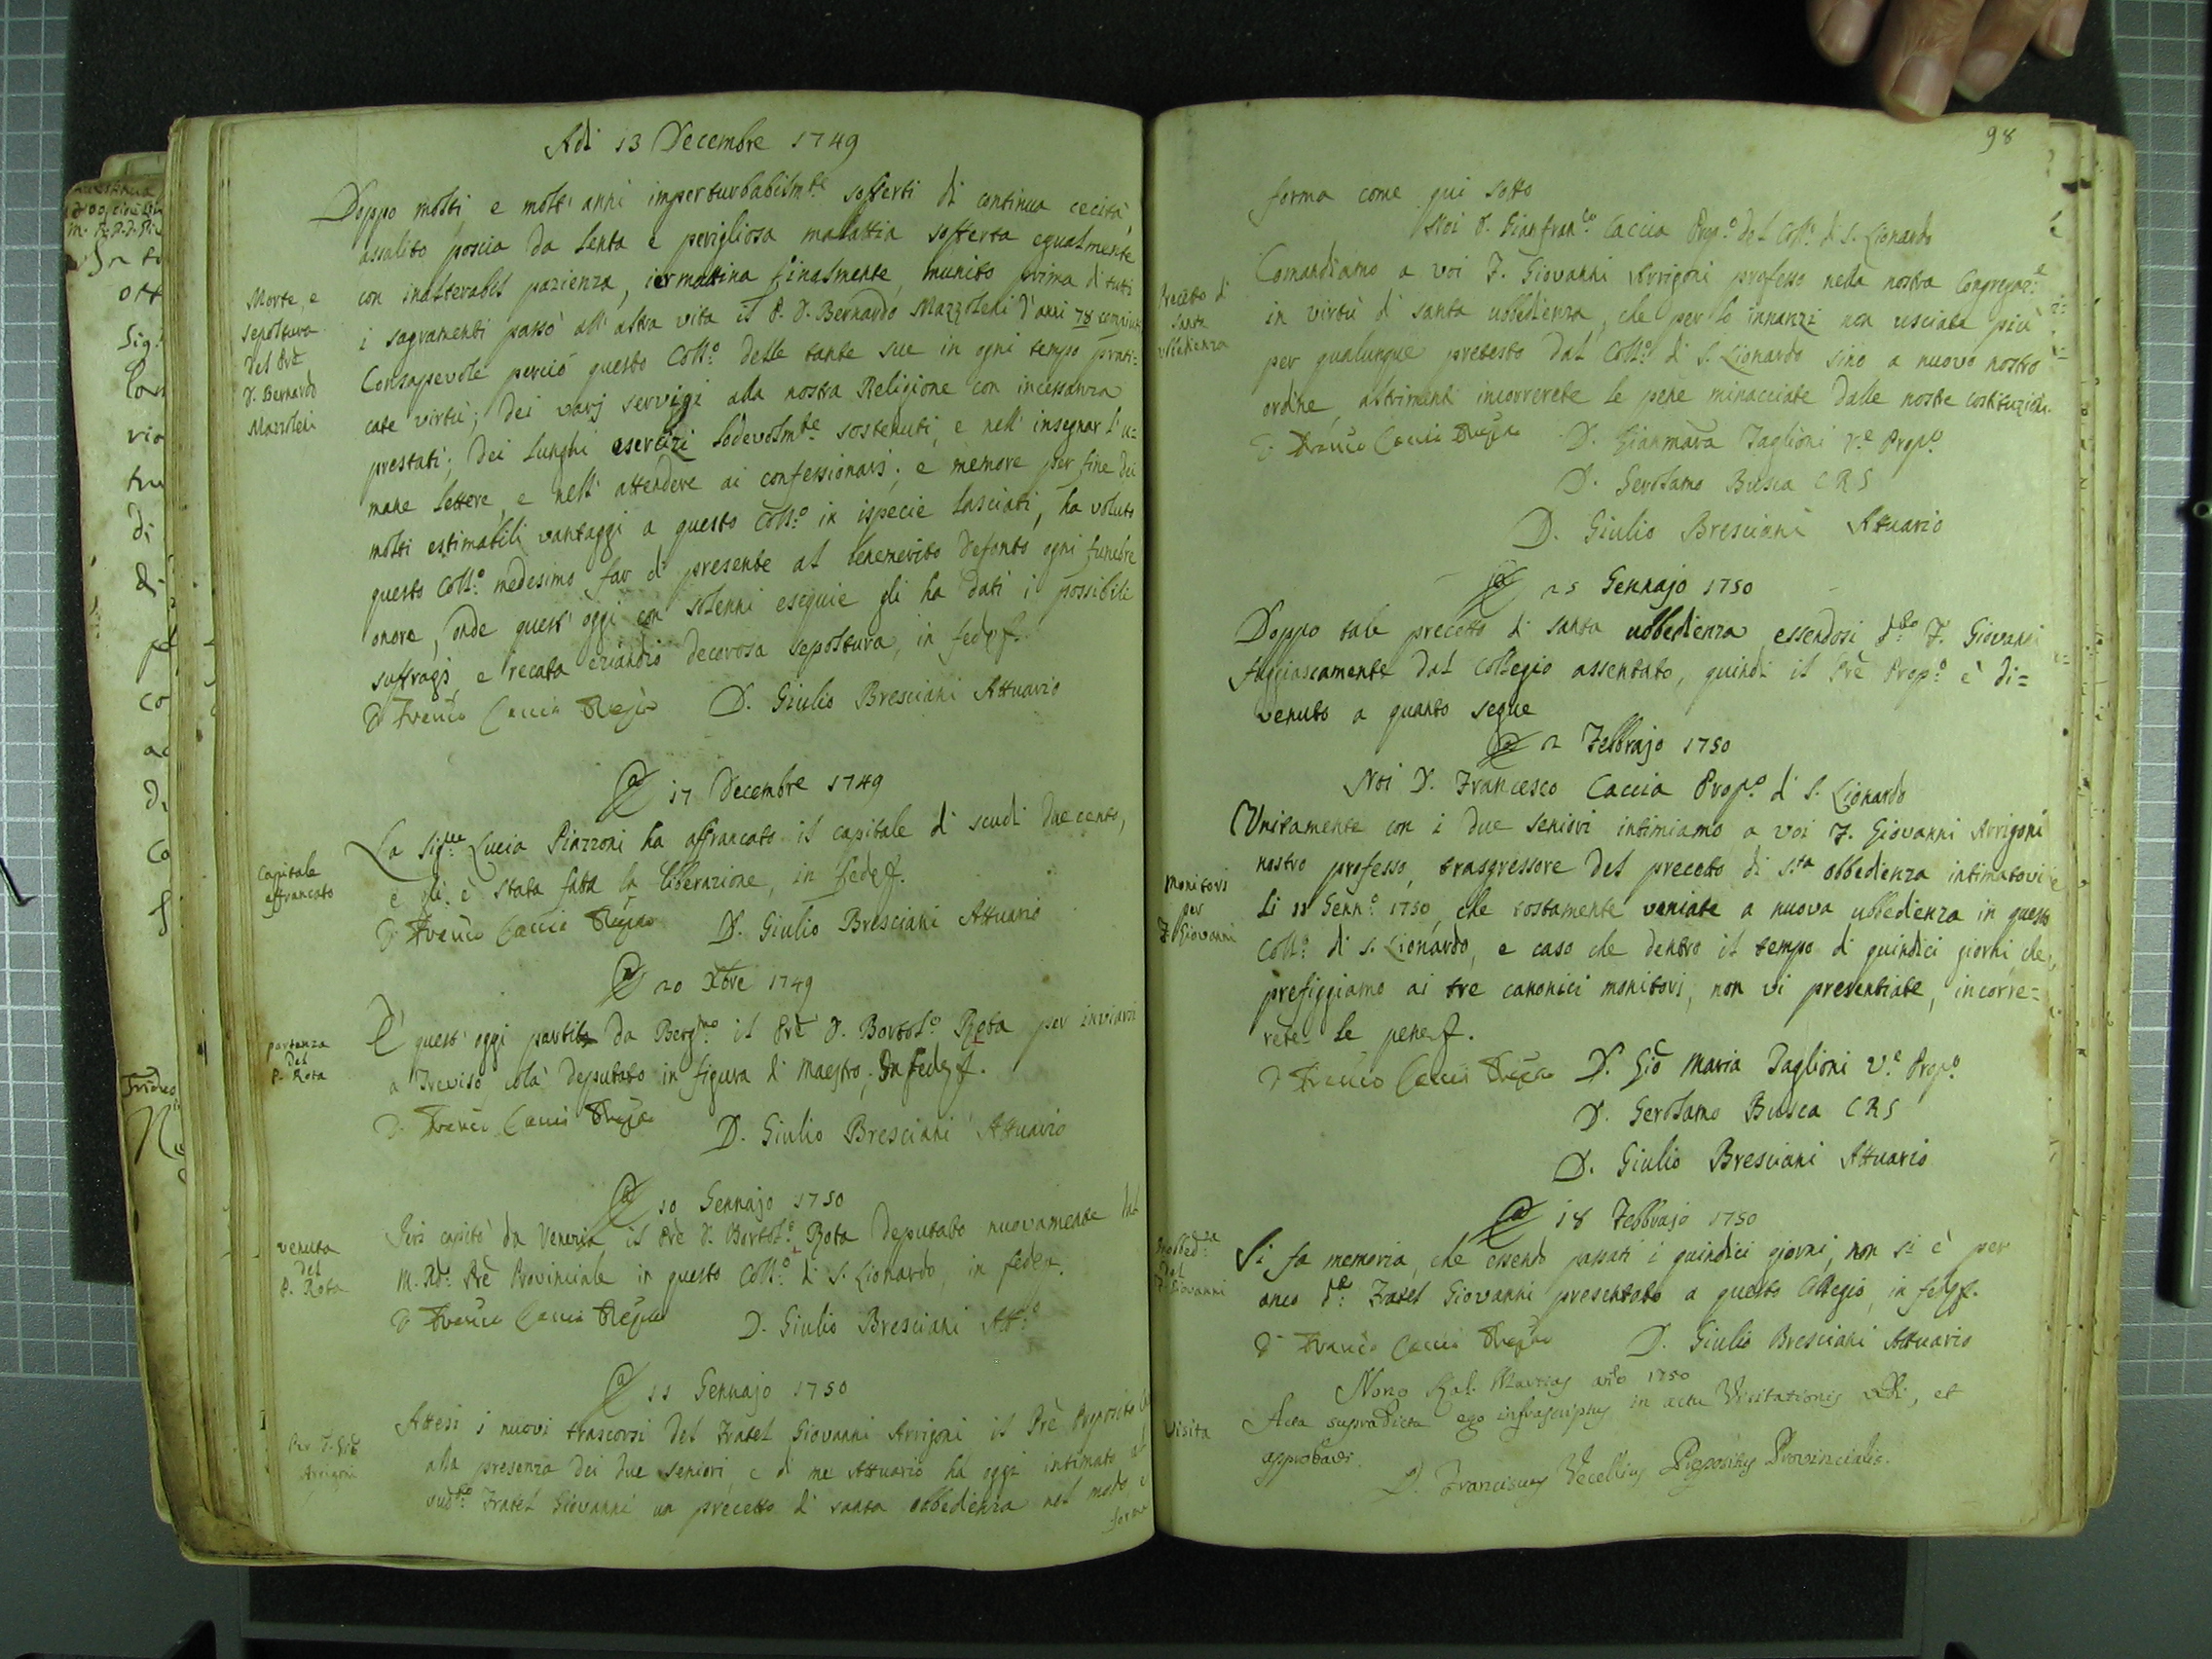 Adi 13 Decembre 1749
Doppo molti, e molt' anni imperturbabilmte sofferti di continua cecità
assalito poscia da lenta e perigliosa malattia sofferta egualmente
con inalterabil pazienza, iermattina finalmente, munito prima di tutti
i sagramenti passò all' altra vita il P. D. Bernardo Mazzoleni d' anni 78 compiuti
Consapevole perciò questo Collo. delle tante sue in ogni tempo prati=
cate virtù; dei varj servigi alla nostra Religione con incessanza
prestati; dei lunghi esercizi lodevolmte sostenuti, e nell' insegnar l' u=
mane lettere, e nell' attendere ai confessionarj; e memore per fine dei
molti estimabili vantaggi a questo Collo. in ispecie lasciati, ha voluto
questo Collo. medesimo far di presente al benemerito defonto ogni funebre
onore, onde quest' oggi con solenni esequie gli ha dati i possibili
suffragj e recata eziandio decorosa sepoltura, in fede
D. Giulio Bresciani Attuario
Morte, e
sepoltura
del Prē
D. Bernardo
Mazzoleni
17 Decembre 1749
La Sigra Lucia Piazzoni ha affrancato il capitale di scudi duecento,
e gli è stata fatta la liberazione, in fede
D. Giulio Bresciani Attuario
Capitale
affrancato
20 Xbre 1749
È quest' oggi partito da Bergmo il Prē D. Bortolo. Rota per inviarsi
a Treviso colà deputato in figura di Maestro, In fede
D. Giulio Bresciani Attuario
partenza
del
P. Rota
10 Gennajo 1750
Jeri capitò da Venezia il Prē D. Bortolo. Rota deputato nuovamente dal
M. Rdo. Prē Provinciale in questo Collo. di S. Lionardo, in fede
D. Giulio Bresciani Atto.
venuta
del
P. Rota
11 Gennajo 1750
Attesi i nuovi trascorsi del Fratel Giovanni Arrigoni il Prē Proposito
alla presenza dei due seniori, e di me Attuario ha oggi intimato al
sudto. Fratel Giovanni un precetto di santa obbedienza nel modo e
forma
Per F. Gio
Arrigoni
98
forma come qui sotto
Noi D. Gianfranco Caccia Propo. del Collo. di S. Lionardo
Comandiamo a voi F. Giovanni Arrigoni professo nella nostra Congregaze.
in virtù di santa ubbedienza, che per lo innanzi non usciate più
per qualunque pretesto dal Collo. di S. Lionardo sino a nuovo nostro
ordine, altrimenti incorrerete le pene minacciate dalle nostre costituzioni.
D. Gianmaria Taglioni Ve. Propo.
D. Gerolamo Busca CRS
D. Giulio Bresciani Attuario
Precetto di
santa
ubbedienza
25 Gennajo 1750
Doppo tale precetto di santa ubbedienza essendosi dto F. Giovanni
fuggiascamente dal collegio assentato, quindi il Prē Propo. è di=
venuto a quanto segue
2 Febbrajo 1750
Noi D. Francesco Caccia Propo. di S. Lionardo
Unitamente con i due seniori intimiamo a voi F. Giovanni Arrigoni
nostro professo, trasgressore del precetto di sta obbedienza intimatovi
li 11 Genno. 1750, che tostamente veniate a nuova ubbedienza in questo
Collo. di S. Lionardo, e caso che dentro il tempo di quindici giorni che
prefiggiamo ai tre canonici monitorj, non vi presentiate, incorre=
rete le pene
D. Gio Maria Taglioni Ve. Propo.
D. Gerolamo Busca CRS
D. Giulio Bresciani Attuario
Monitori
per
F. Giovanni
18 Febbrajo 1750
Si fa memoria, che essendo passati i quindici giorni, non si è per
anco dto. Fratel Giovanni presentato a questo Collegio, in fede
D. Giulio Bresciani Attuario
del
F. Giovanni
Nono Kal. Martias año 1750
Acta supradicta ego infrascriptus in actu Visitationis, et
approbavi.
D. Franciscus Vecellius Præpositus Provincialis.
Visita